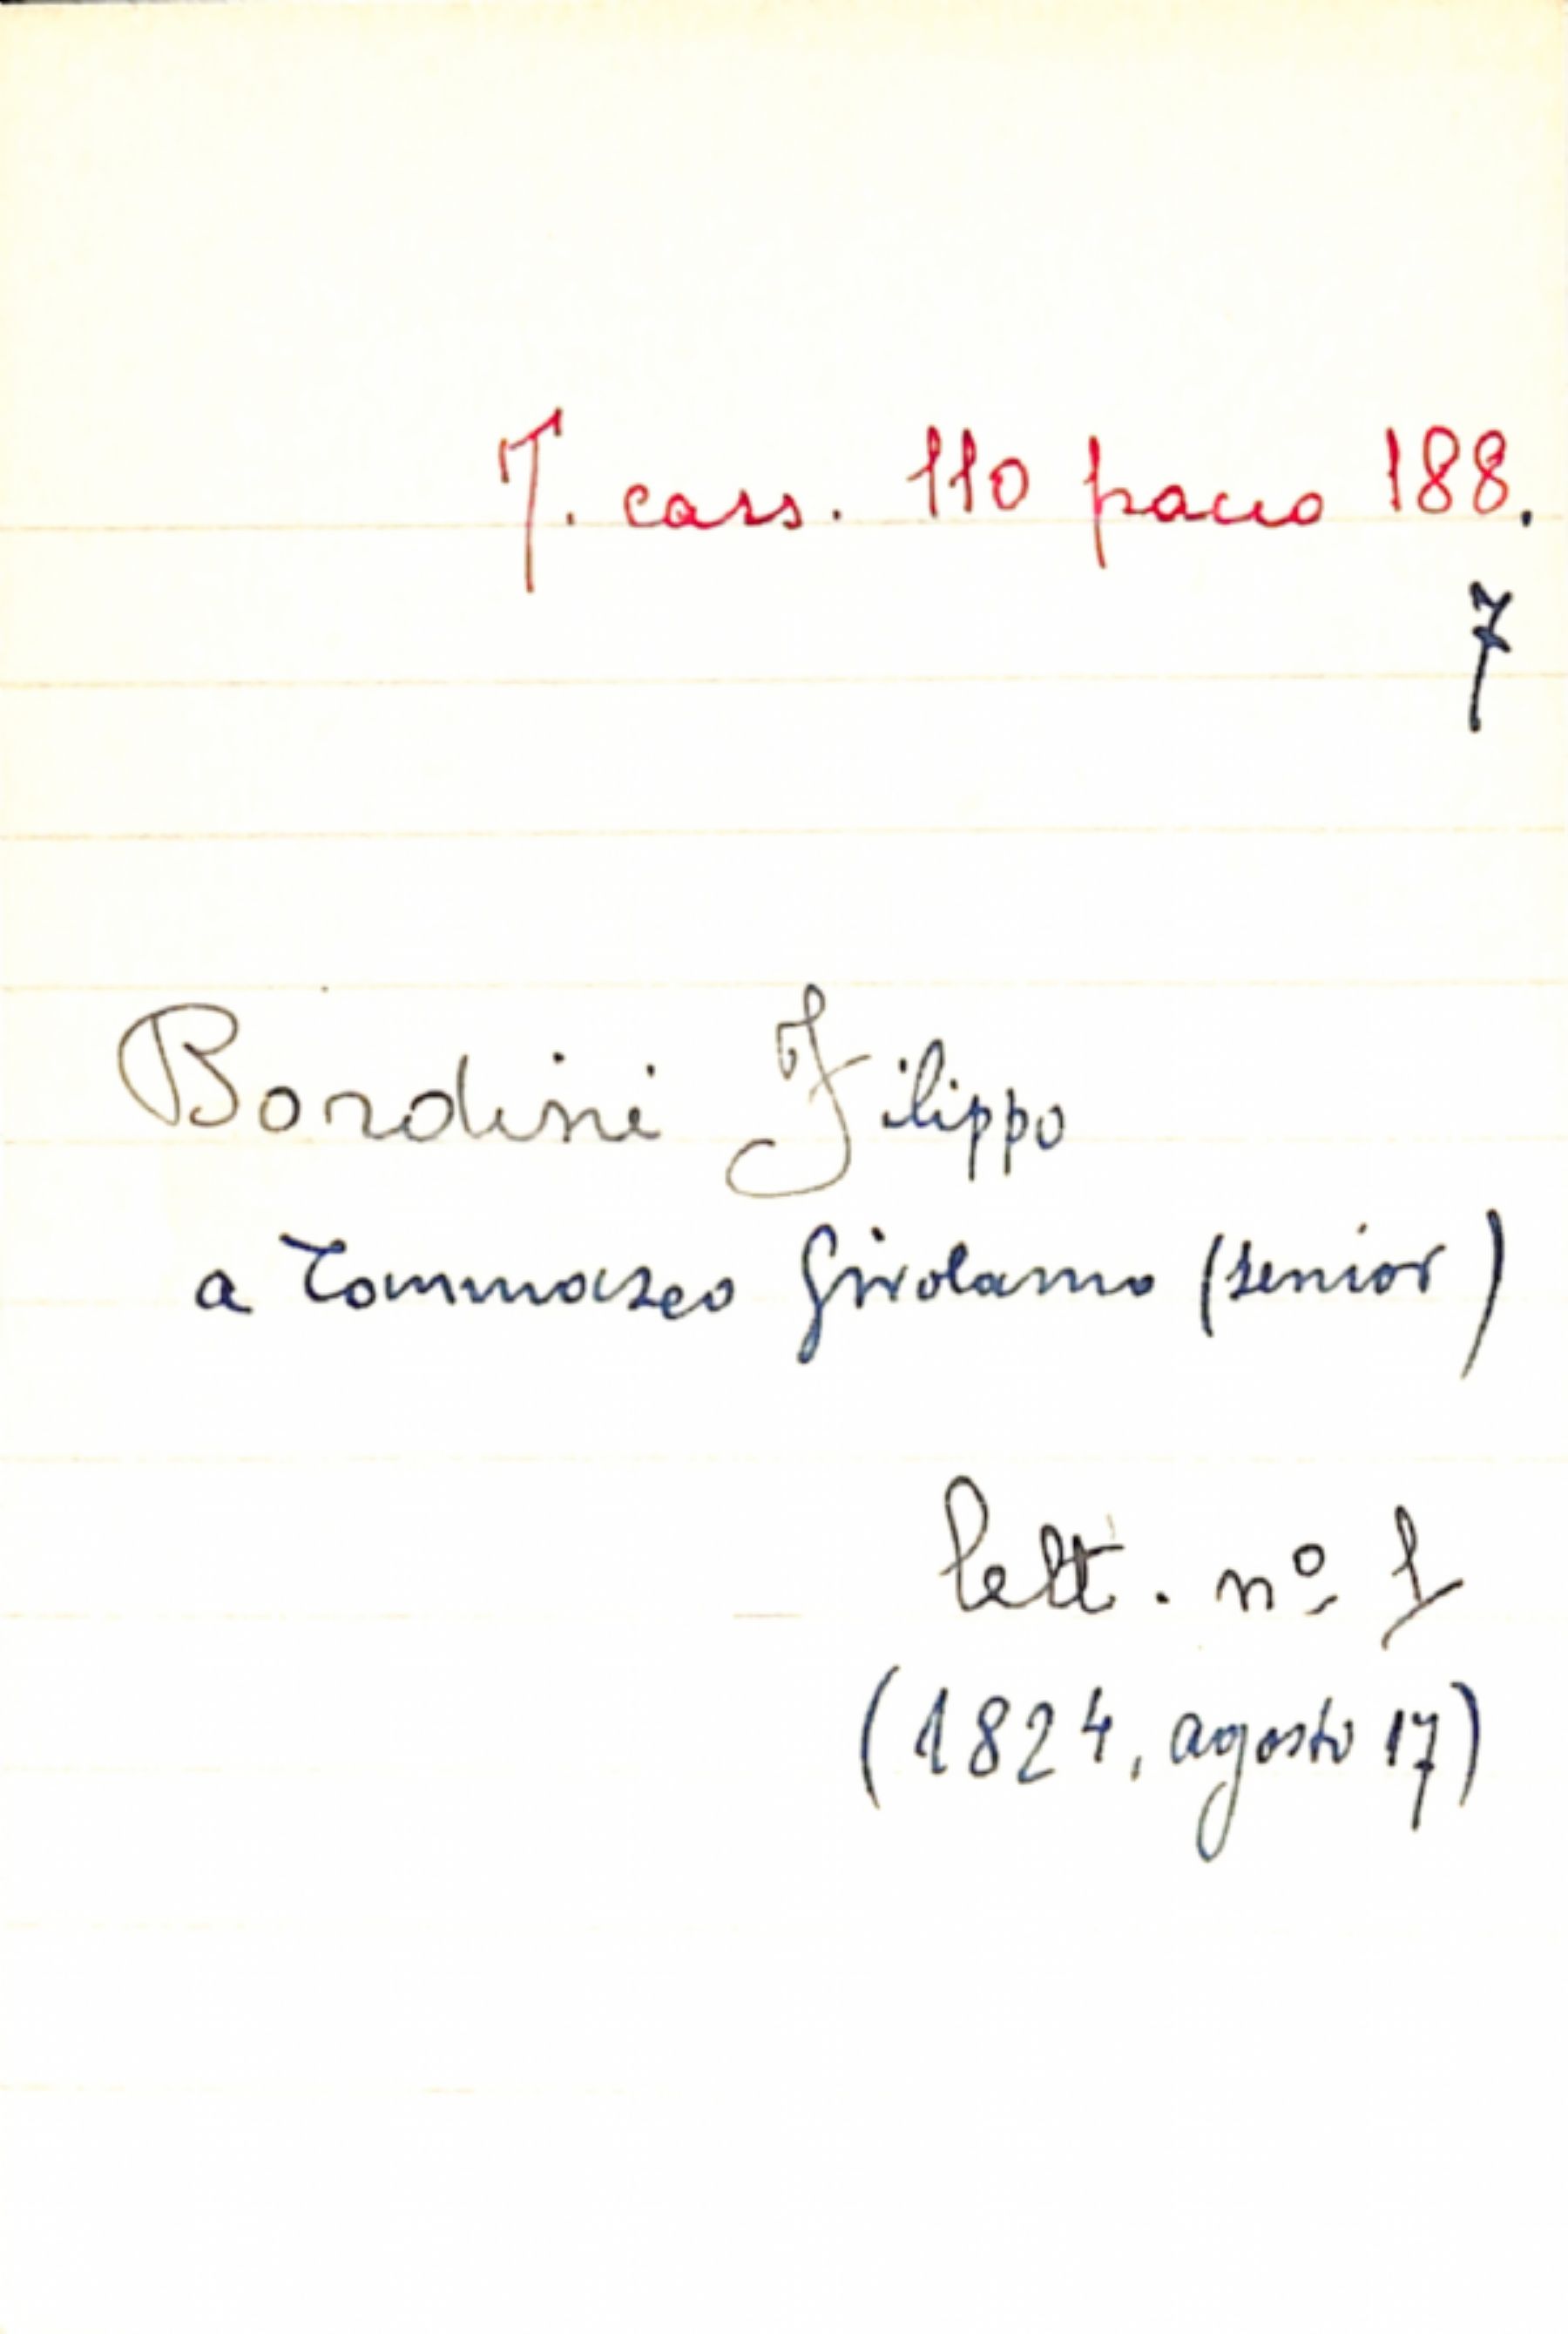 T. cass. 110 pacco 188.
7
Bordini Filippo
a Tommaseo Girolamo (senior)
lett. nº 1
(1824, agosto 17)